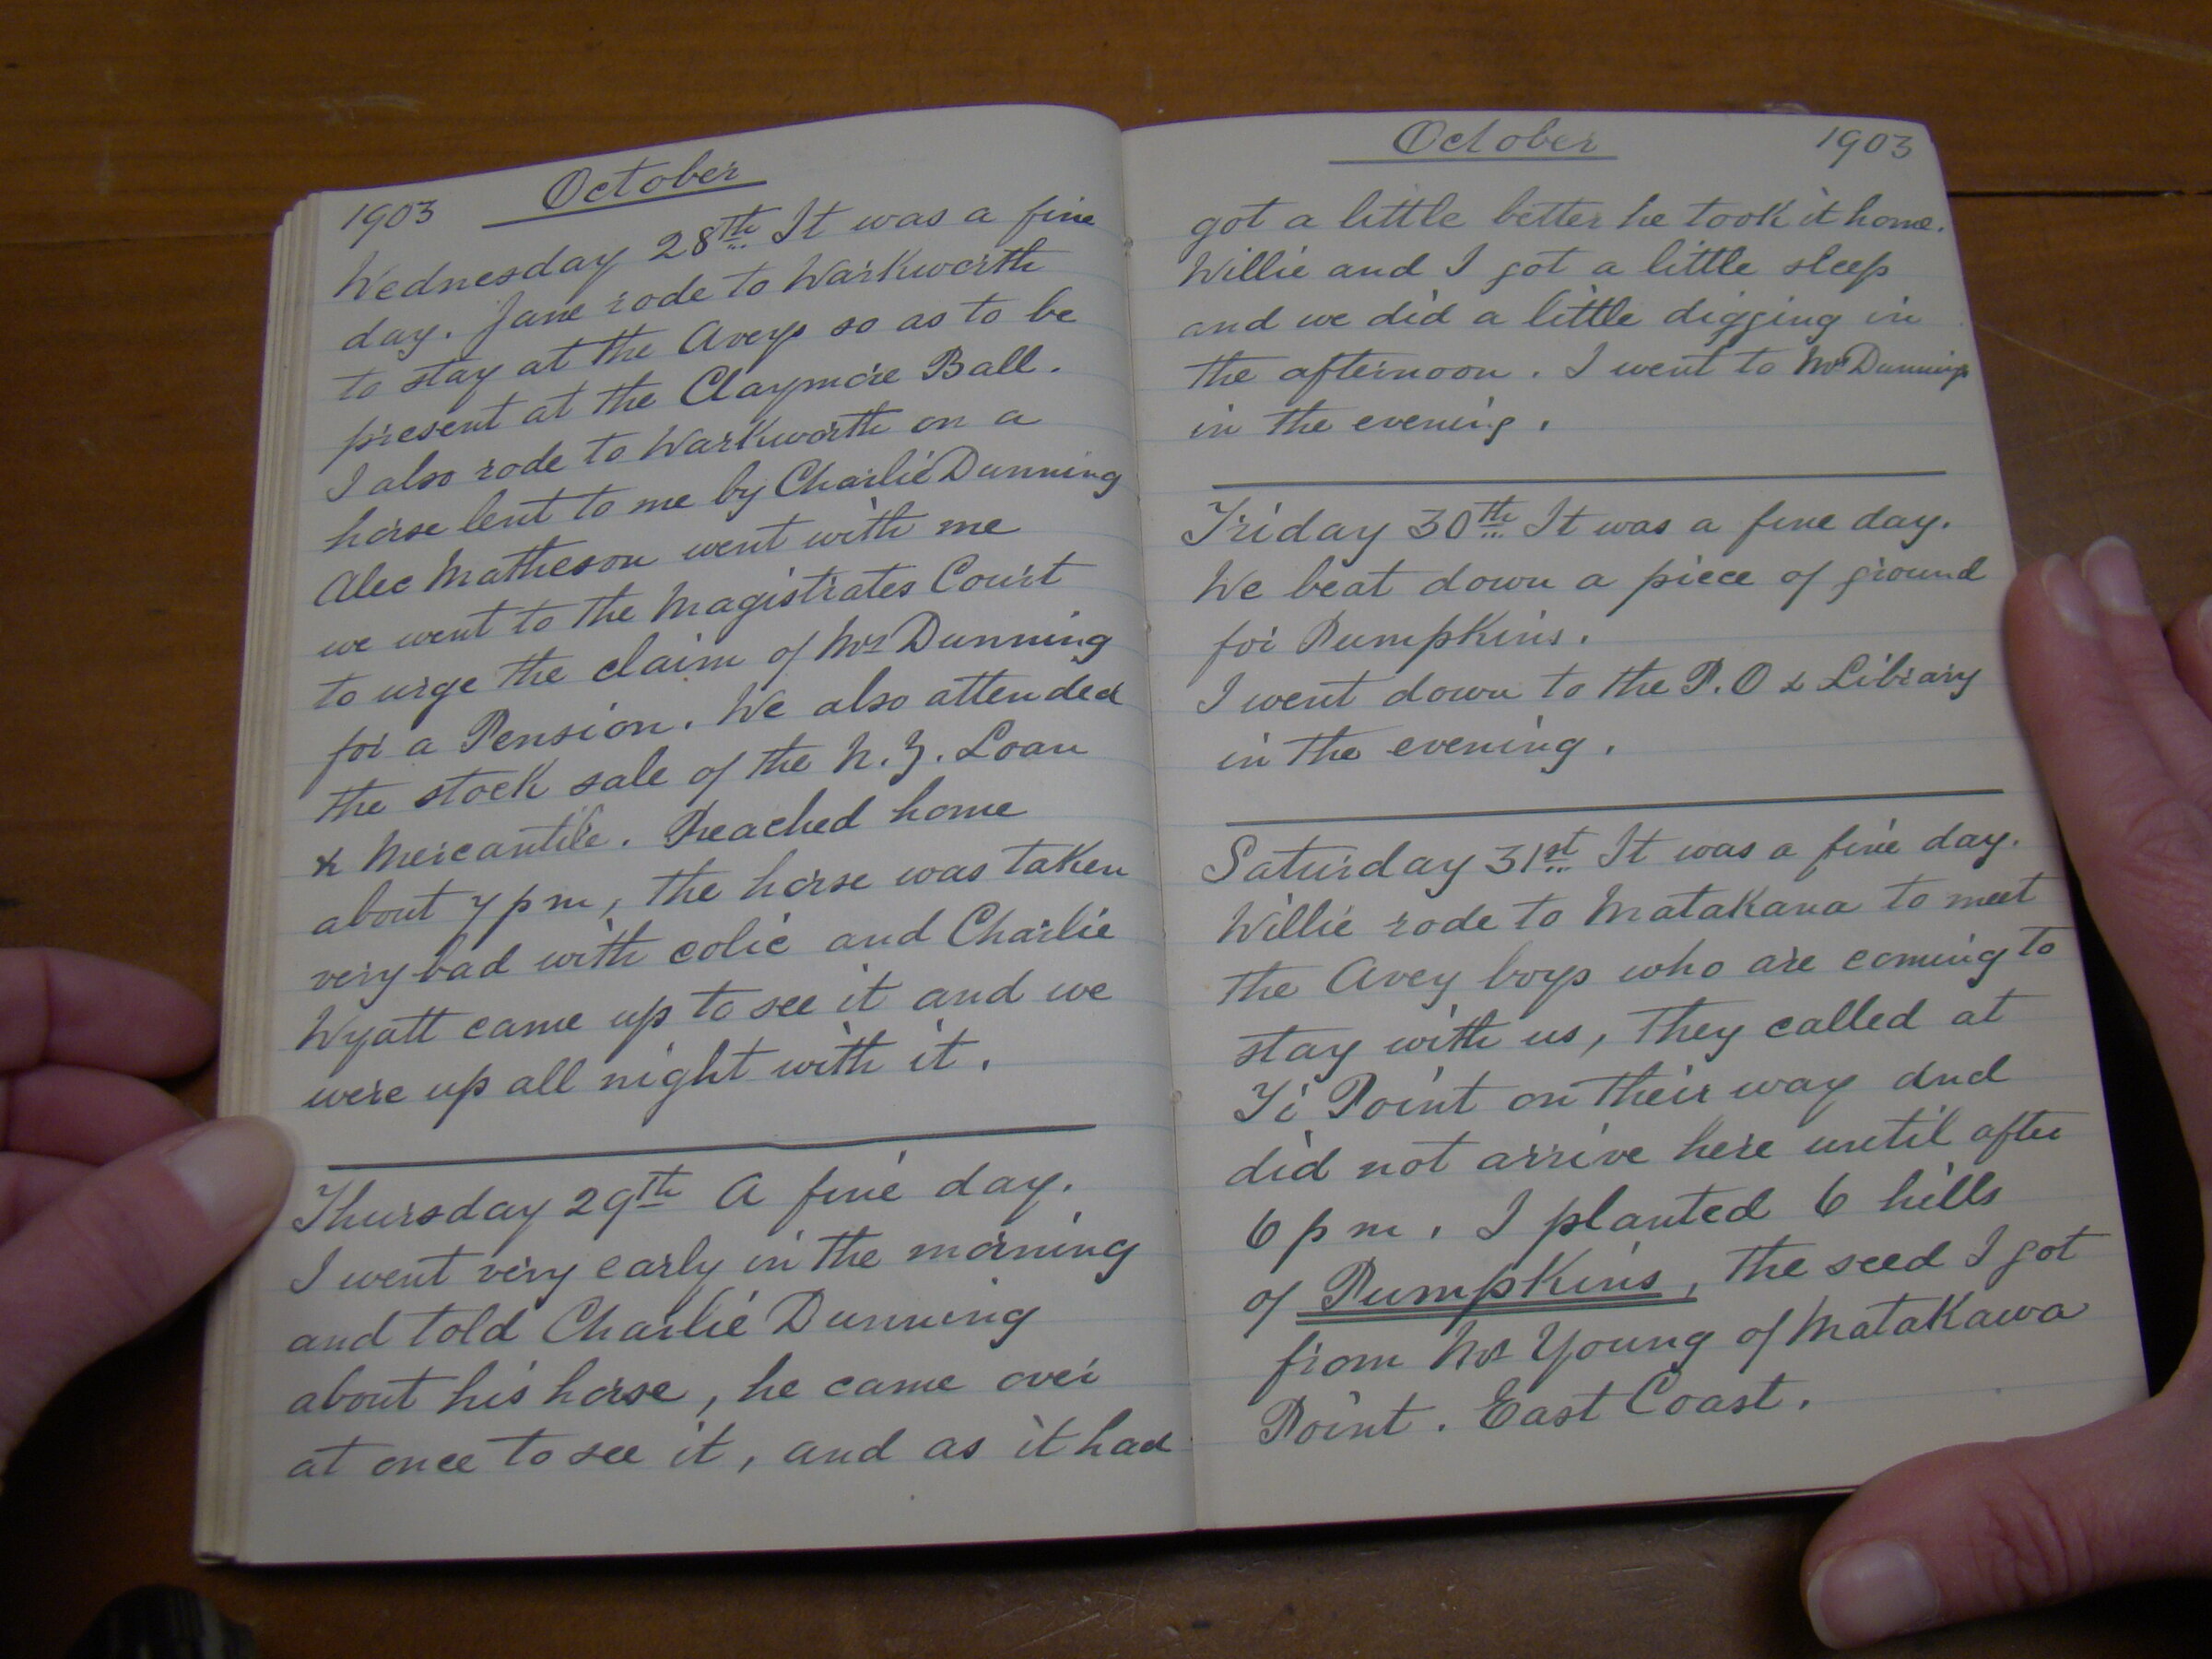 1903 October
Wednesday 28th It was a fine
day. Jane rode to Warkworth
to stay at the Aveys so as to be
present at the Claymore Ball.
I also rode to Warkworth on a
horse lent to me by Charlie Dunning
Alec Matheson went with me
we went to the Magistrates Court
to urge the claim of Mrs Dunning
for a Pension. We also attended
the stock sale of the N.Z. Loan
& Mercantile. Reached home
about 7 pm, the horse was taken
very bad with colic and Charlie
Wyatt came up to see it and we
were up all night with it.
Thursday 29th A fine day.
I went very early in the morning
and told Charlie Dunning
about his horse, he came over
at once to see it, and as it had
October 1903
got a little better he took it home.
Willie and I got a little sleep
and we did a little digging in
the afternoon. I went to Mrs Dunnings
in the evening.
Friday 30th It was a fine day.
We beat down a piece of ground
for Pumpkins.
I went down to the P.O & Library
in the evening.
Saturday 31st It was a fine day.
Willie rode to Matakana to meet
the Avey boys who are coming to
stay with us, They called at
Ti Point on their way and
did not arrive here until after
6 pm. I planted 6 hills
of Pumpkins, the seed I got
from Mrs Young of Matakawa
Point. East Coast.